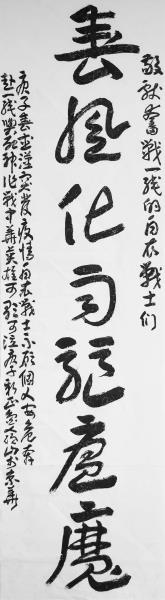 敬献奋战一线的白衣战士们
春风化雨驱瘟魔
庚子春武汉突发疫情白衣战士不顾個人安危奔
赴一线與病神作战中華英雄可歌可泣庚子新正